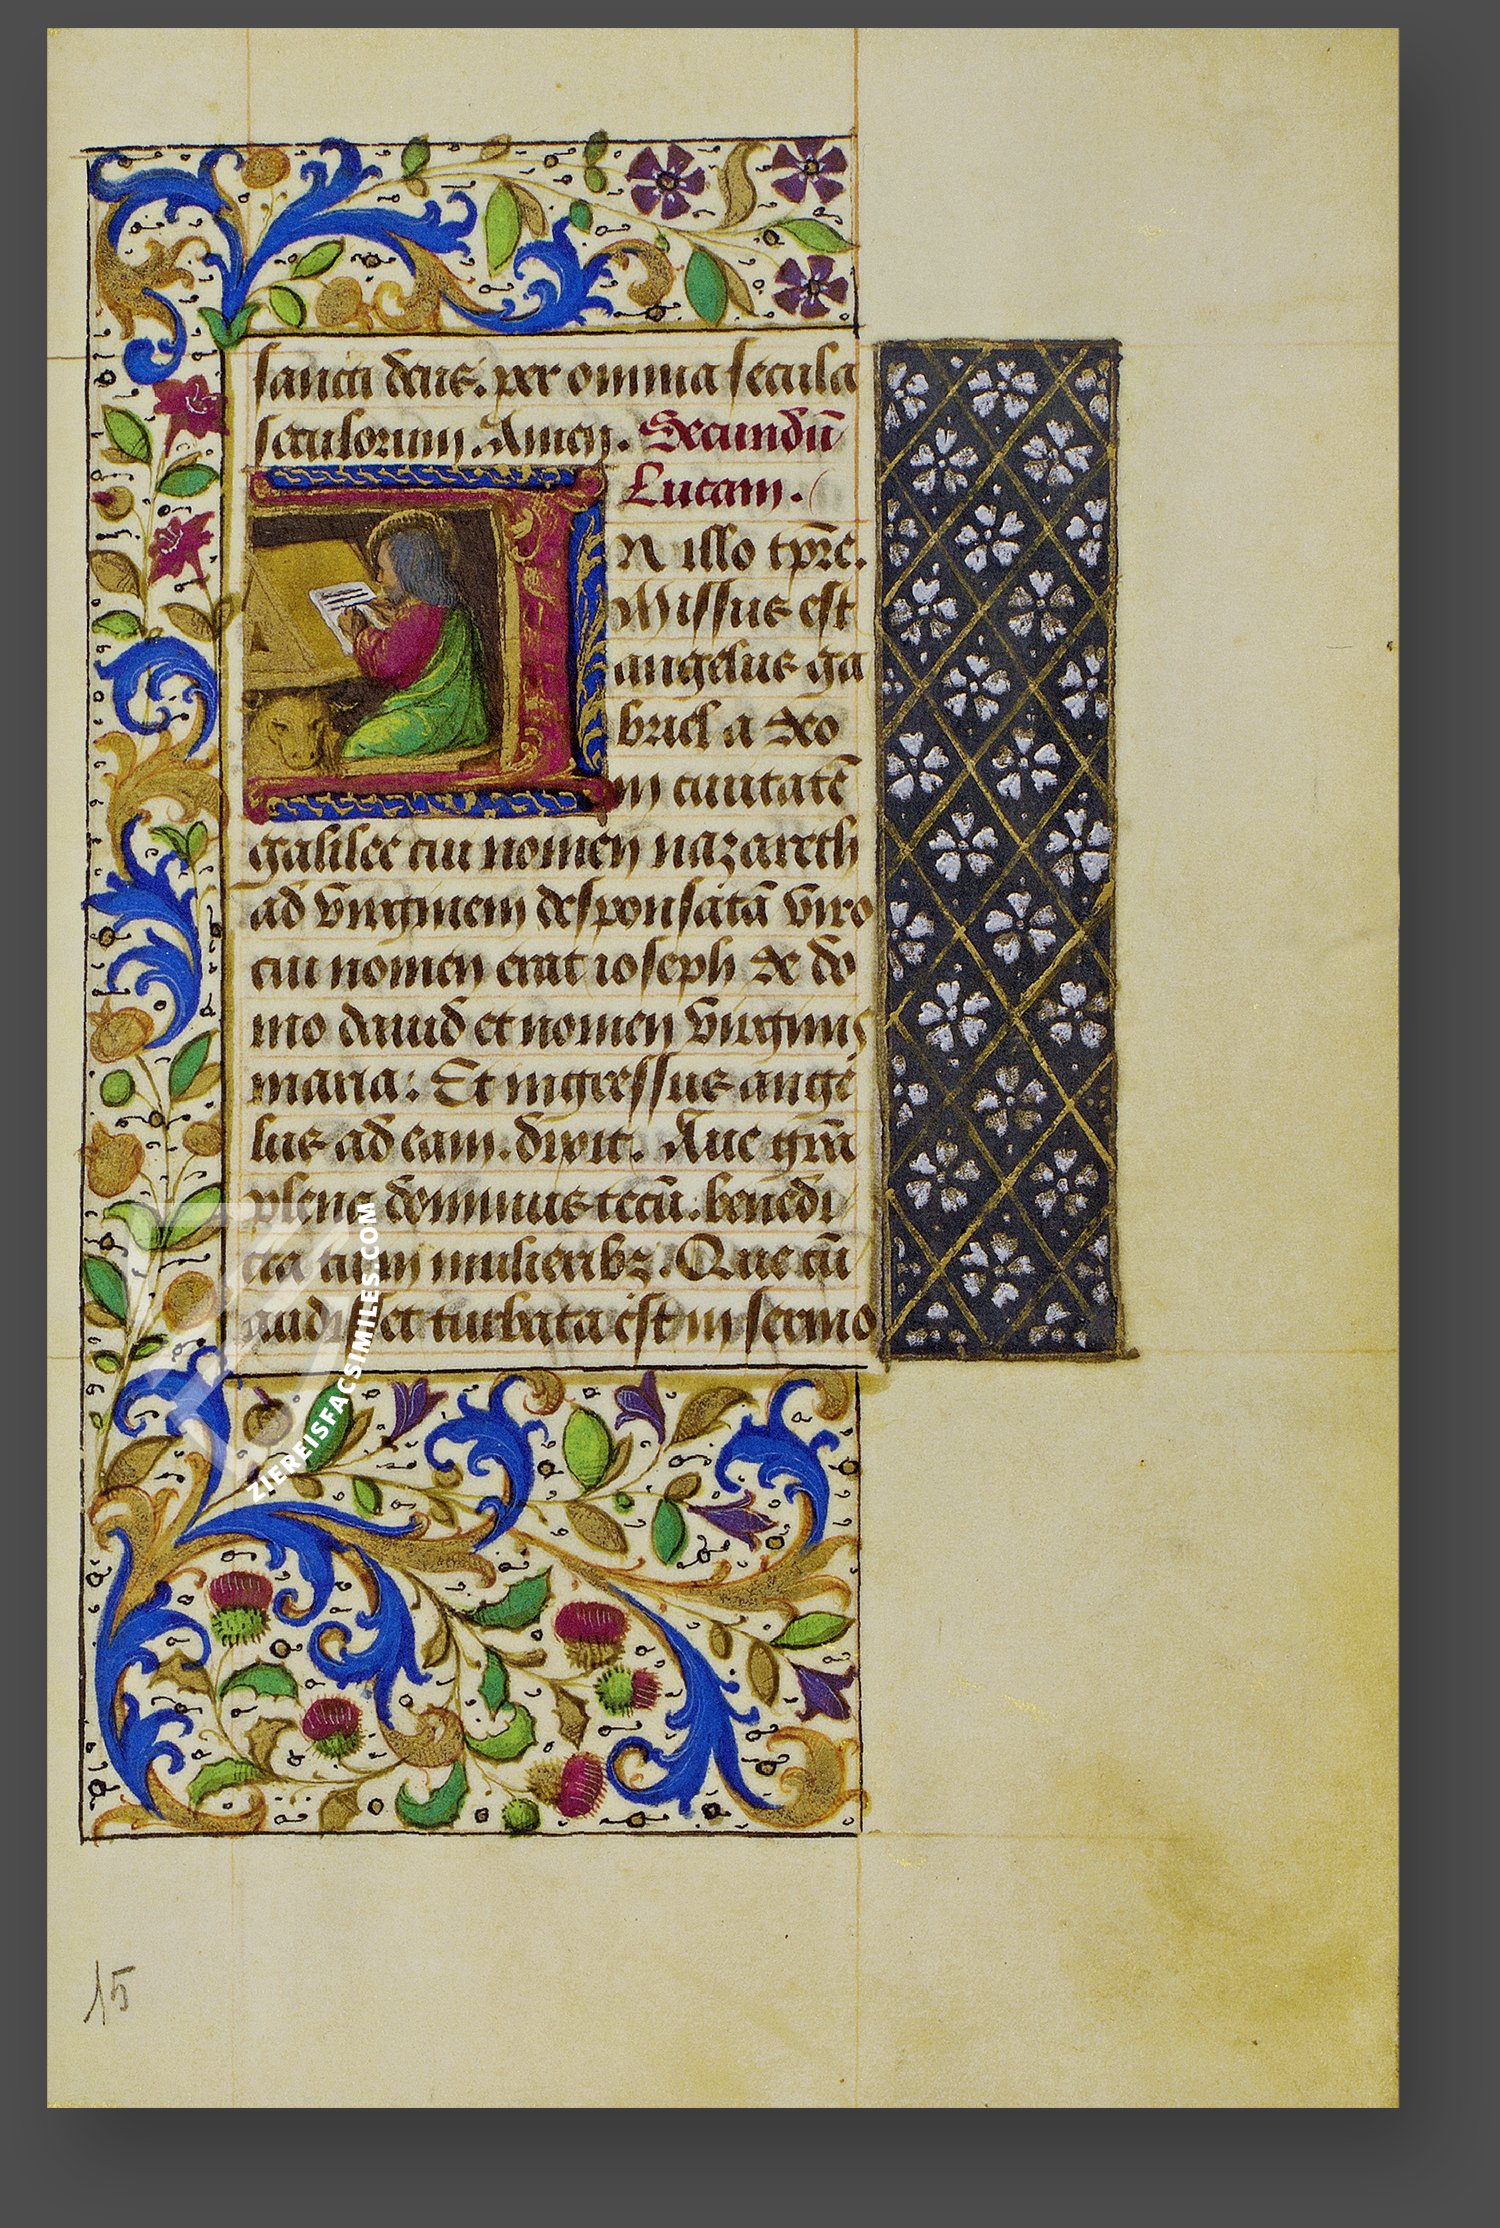 sancti deus. per omnia secula
seculorum. Amen. Secundū
Lucam.
N illo tp̄re.
Missus est
angelus ga
briel a deo
in ciuitatē
galilee cui nomen nazareth
ad virginem desponsatā viro
cui nomen erat ioseph de do
mo dauid et nomen virginis
maria: Et ingressus ange
lus ad eam. dixit. Aue gr̄a
plena dominus tecū. benedi
cta tu in mulieribz. Que cū
audisset turbata est in sermo
ZIEREISFACSIMILES.COM
15